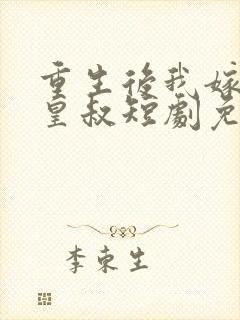 重生後我嫁
皇叔短劇免
李東生